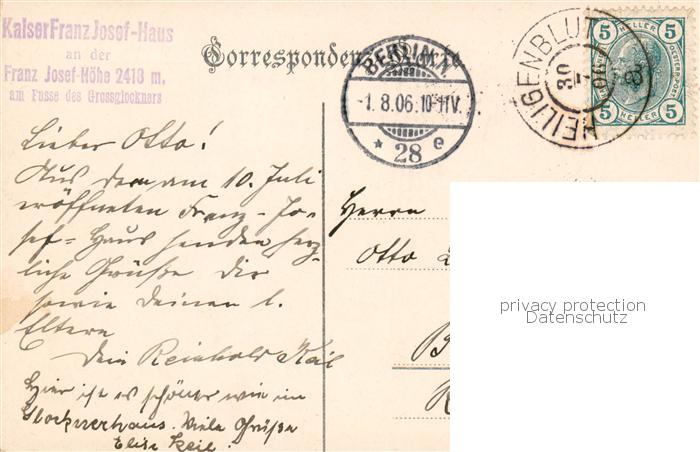 KaiserFranzJosef-Haus
an der
Franz Josef-Höhe 2418 m.
am Fusse des Grossglockners
Correspondenz-Karte
BERLIN.N.
-1.8.06.10-11V.
* 28 e
HEILIGENBLUT
30
5 HELLER 5
5 HELLER 5
Lieber Otto!
Aus dem am 10. Juli
eröffneten Franz-Jo-
sef-Haus senden herz-
liche Grüße Dir
sowie Deinen l.
Eltern
Dein Reinhold Keil
Hier ist es schöner wie im
Glocknerhaus. Viele Grüße
Elise Keil.
Herrn
Otto
privacy protection
Datenschutz